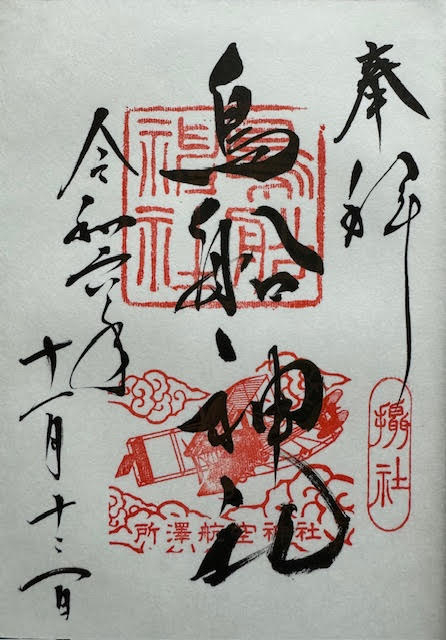 奉拝
攝社
鳥船神社
鳥船
神社
所澤航空神社
令和六年
十一月十三日